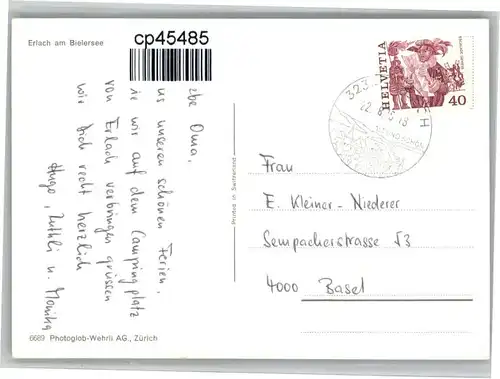 Erlach am Bielersee
cp45485
be Oma,
us unseren schönen Ferien,
ie wir auf dem Campingplatz
von Erlach verbringen grüssen
wir Dich recht herzlich
Hugo, Ruthli u. Monika
6689 Photoglob-Wehrli AG., Zürich
Printed in Switzerland
323
22.8.
HELVETIA
40
Frau
E. Kleiner-Niederer
Sempacherstrasse 53
4000 Basel